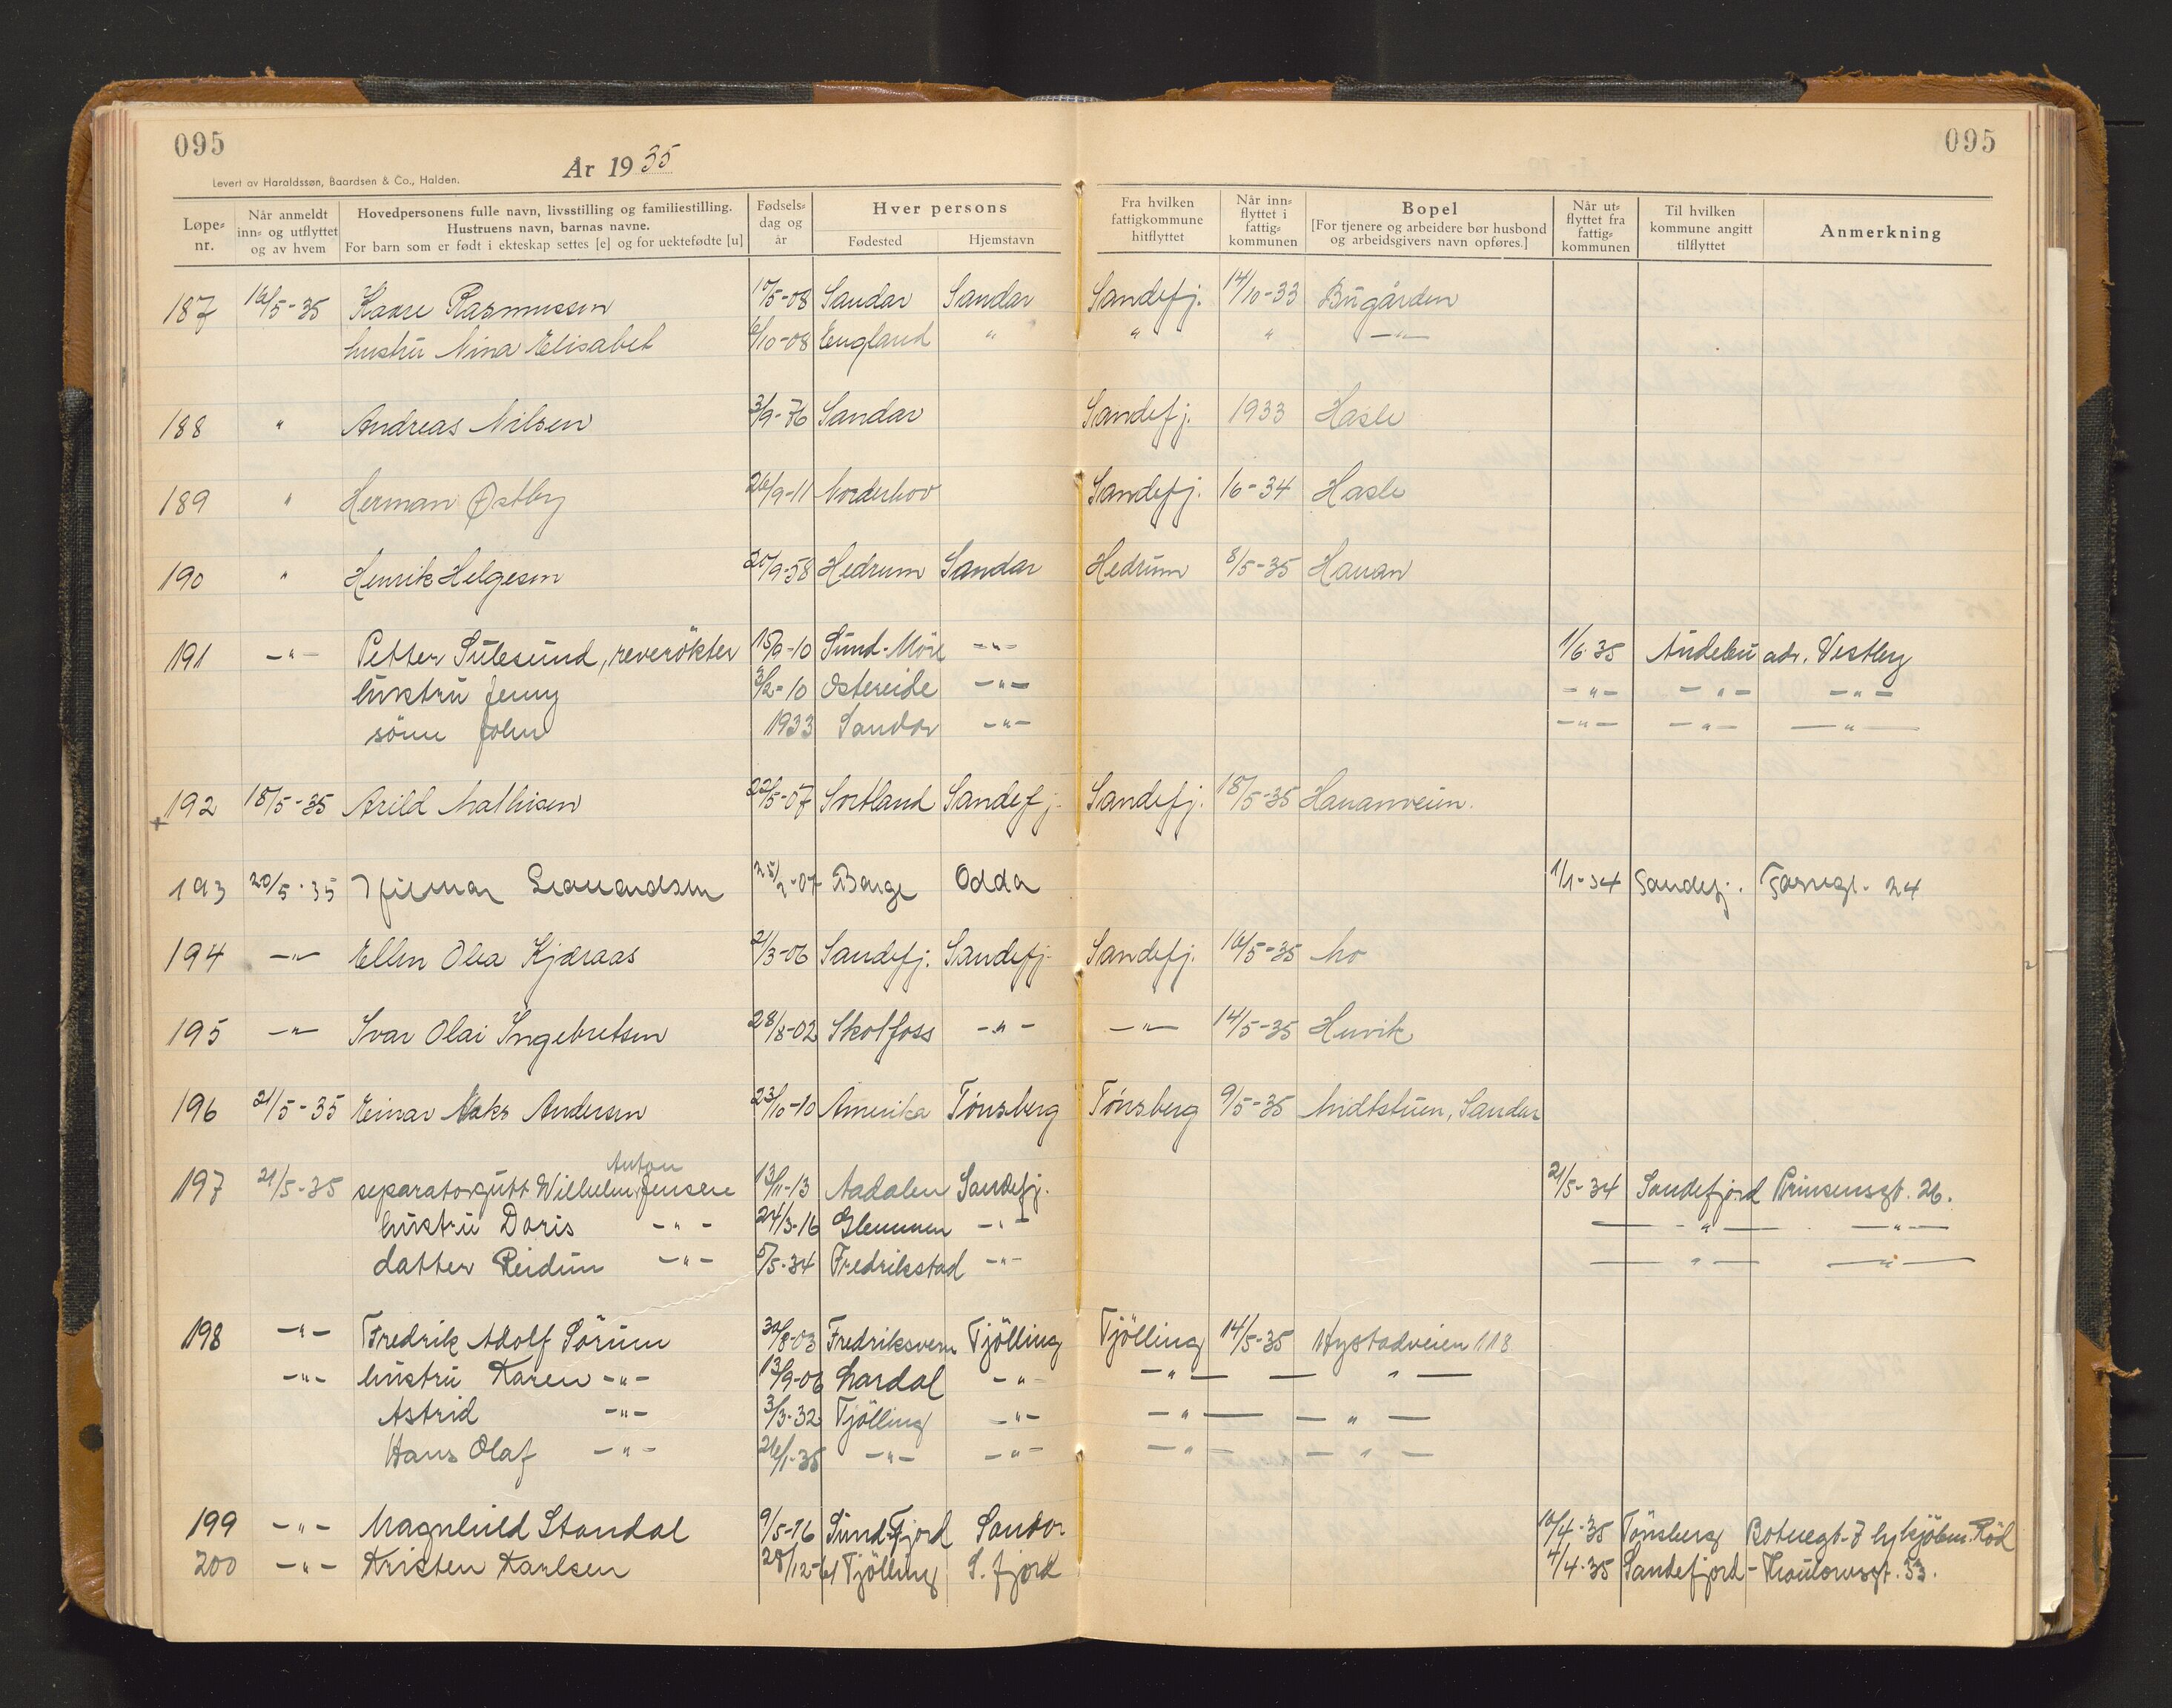 095
095
År 1935
Levert av Haraldssøn, Baardsen & Co., Halden.
Løpe-nr.
Når anmeldt inn- og utflyttet og av hvem
Hovedpersonens fulle navn, livsstilling og familiestilling.
Hustruens navn, barnas navne.
For barn som er født i ekteskap settes [e] og for uektefødte [u]
Fødsels-dag og år
Hver persons
Fødested
Hjemstavn
Fra hvilken fattigkommune hitflyttet
Når inn-flyttet i fattig-kommunen
Bopel
[For tjenere og arbeidere bør husbond og arbeidsgivers navn opføres.]
Når ut-flyttet fra fattig-kommunen
Til hvilken kommune angitt tilflyttet
Anmerkning
187 16/5-35 Kaare Rasmussen 15-08 Sandar Sandar Sandefj. 14/10-33 Bugården
hustru Nina Elisabet 6/10-08 England " " " -"-
188 " Andreas Nilsen 3/9-76 Sandar Sandefj. 1933 Hasle
189 " Herman Østby 26/9-11 Norderhov Sandefj. 16-34 Hasle
190 " Henrik Helgesen 20/9-58 Hedrum Sandar Hedrum 8/5-35 Hauan
191 -"- Petter Sulesund, reverökter 15/9-10 Sund-Möre -"- 1/6-35 Andebu adr. Vestby
hustru Jenny 3/2-10 Ostereide -"- -"- -"- -"-
sönn John 1933 Sandar -"- -"- -"- -"-
192 18/5-35 Arild Mathisen 22/5-07 Sortland Sandefj. Sandefj. 18/5-35 Hauanveien.
193 20/5-35 Hjelmar 25/2-07 Borge Odda 1/1-34 Sandefj. 24
194 -"- Ellen Olea Kjæraas 21/3-06 Sandefj. Sandefj. Sandefj. 16/5-35 Mo
195 -"- Ivar Olai Ingebretsen 28/8-02 Skotfoss -"- -"- 14/5-35 Huvik
196 21/5-35 Einar Maks Andersen 23/10-10 Amerika Tönsberg Tönsberg 9/5-35 Midtstuen, Sandar
Anton
197 21/5-35 separatorgutt Wilhelm Jensen 13/11-13 Aadalen Sandefj. 21/5-34 Sandefjord Prinsensgt. 26.
hustru Doris -"- 24/3-16 Glemmen -"- -"- -"-
datter Reidun -"- 5/5-34 Fredrikstad -"- -"- -"-
198 -"- Fredrik Adolf Sörum 30/8-03 Fredriksvern Tjölling Tjölling 14/5-35 Nystadveien 118
-"- hustru Karen -"- 13/9-06 Lardal -"- -"- - " -
Astrid -"- 3/3-32 Tjölling -"- -"- - " -
Hans Olaf -"- 26/1-35 -"- -"- -"- - " -
199 -"- Magnhild Standal 9/5-16 Sund-Fjord Sandar 10/4-35 Tönsberg Rød
200 -"- Kristen Karlsen 28/12-61 Tjölling S. fjord 4/4-35 Sandefjord - Thaulowsgt. 33.